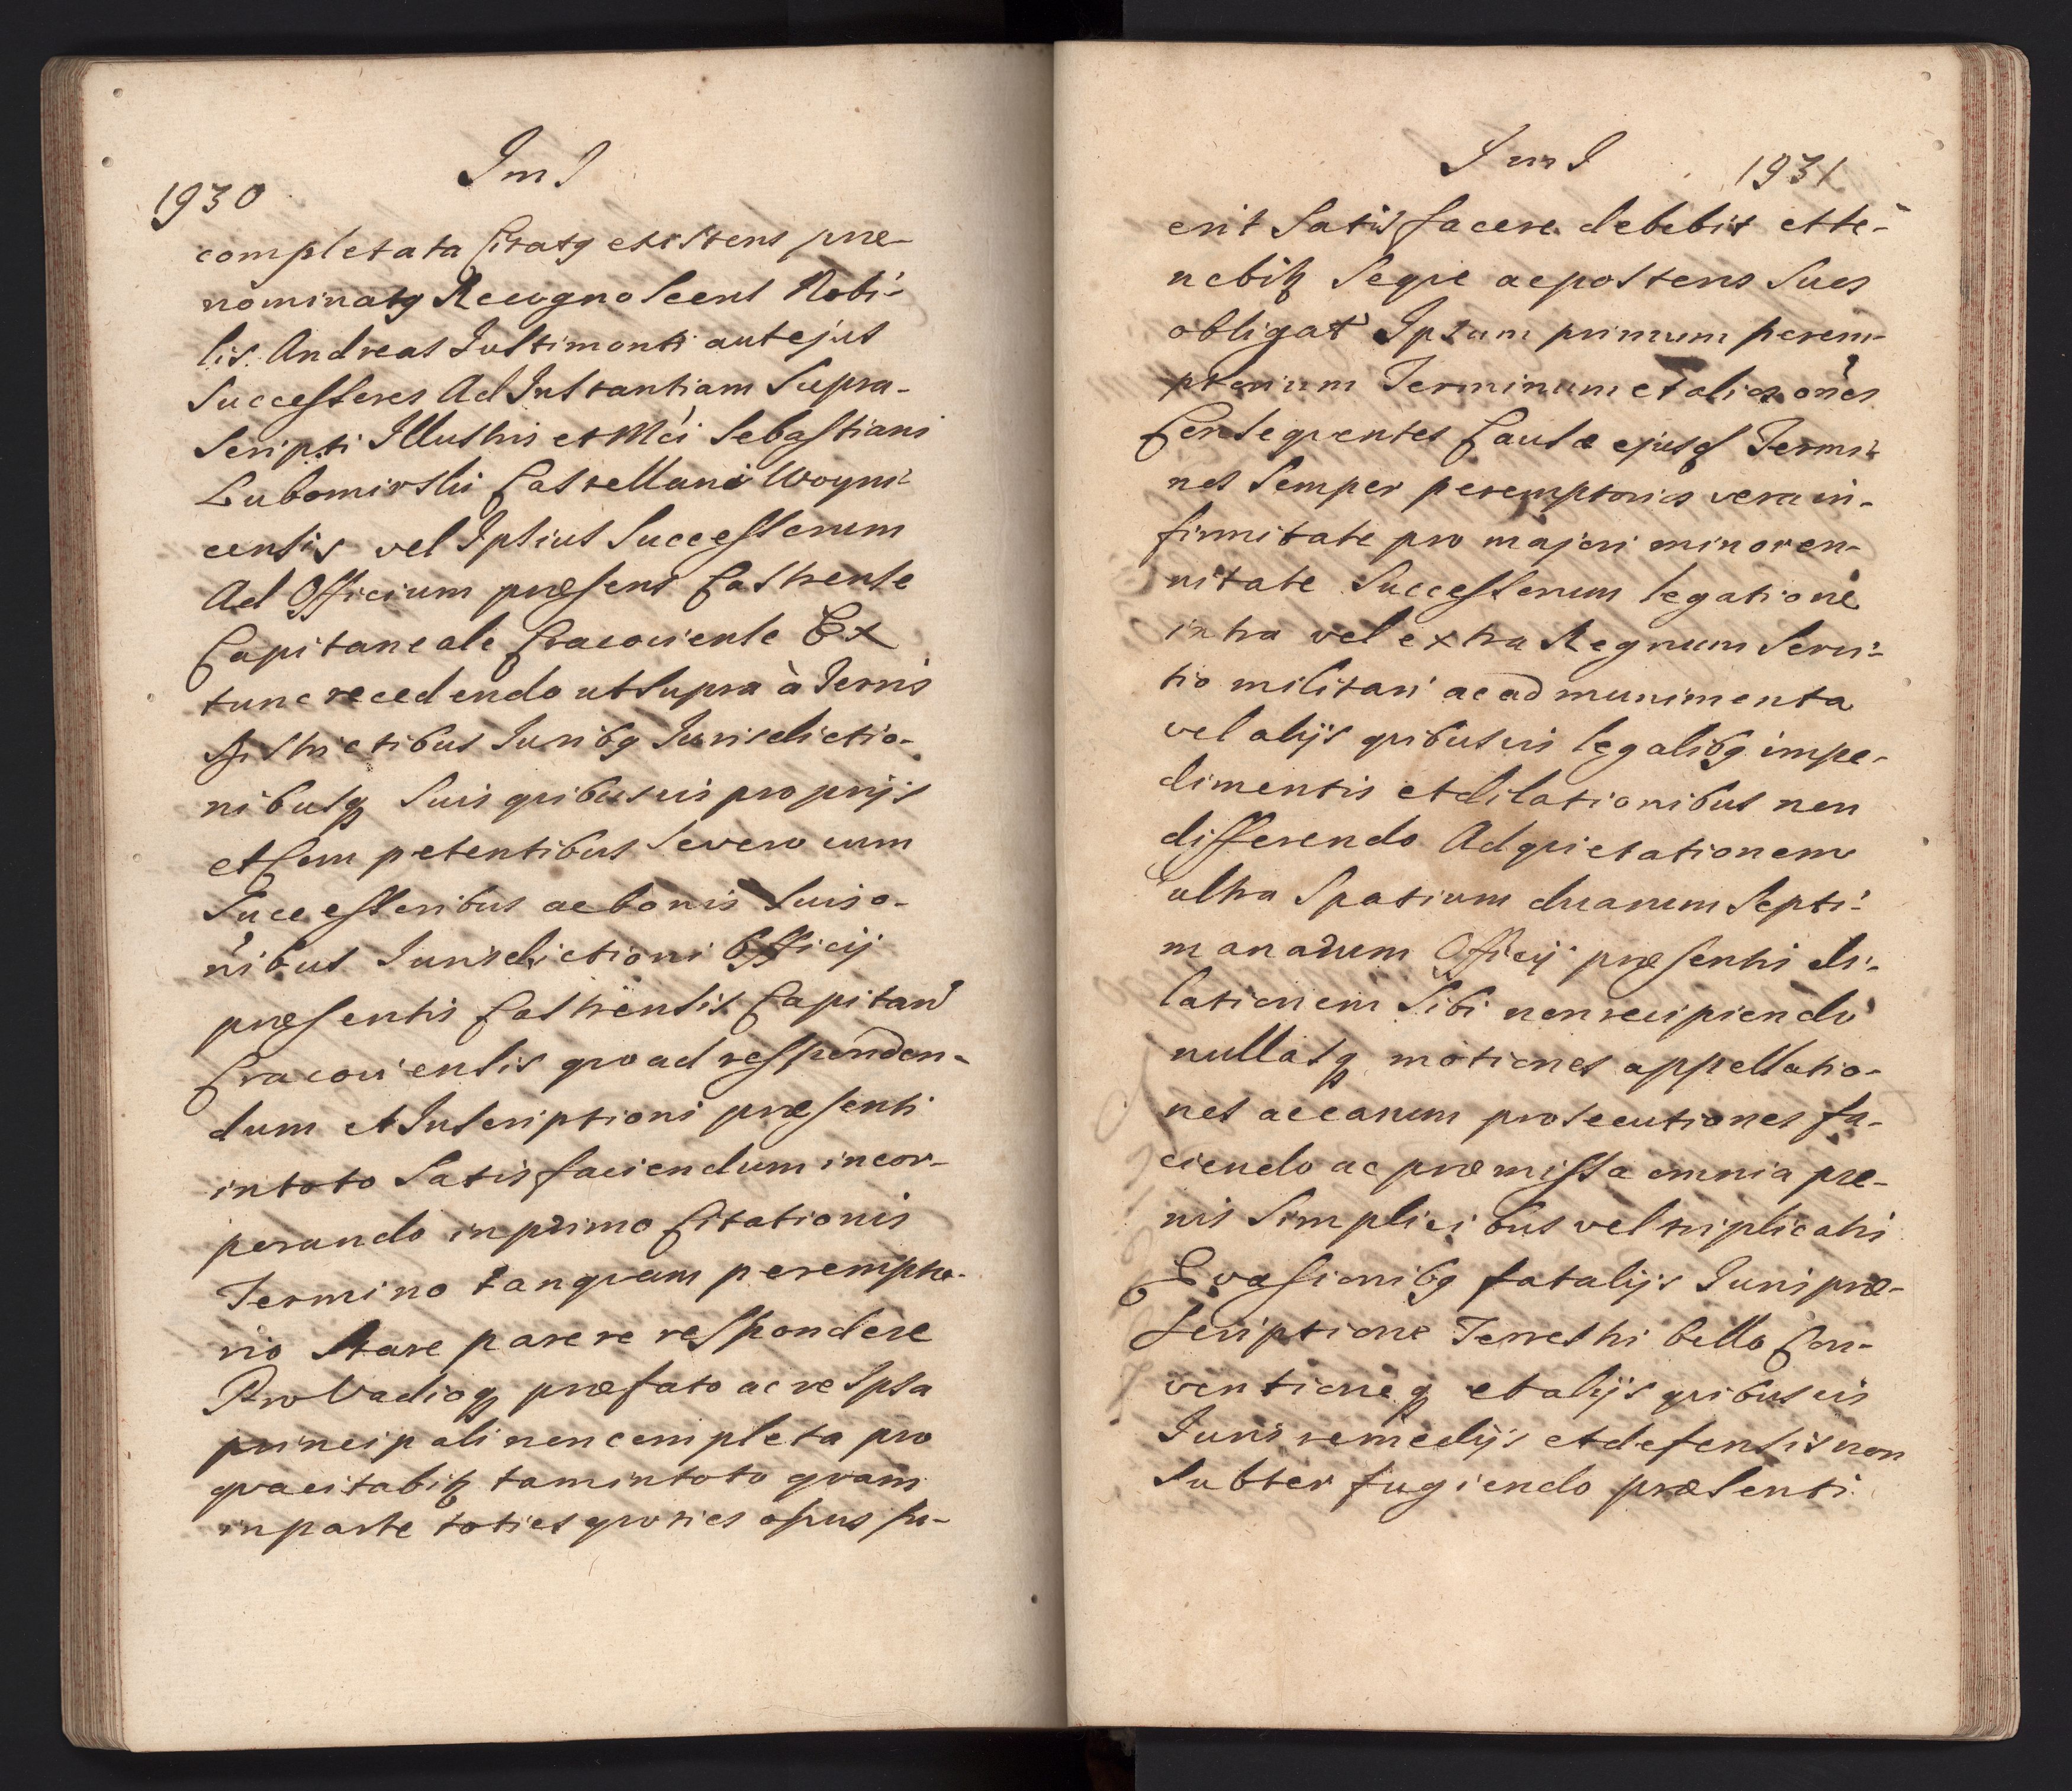 1930
ImJ
completa ta Citatq existens prae-
nominatq Recognoscens Nobi-
lis Andreas Justimonti aut ejus
Successores Ad Instantiam Supra-
Scripti Illustris et Mci Sebastiani
Lubomirski Castellani Woyni-
censis vel Ipsius Successorum
Ad Officium praesens Castrense
Capitaneale Cracoviense Ex
tunc recedendo ut supra à Terris
Districtibus Juribq Jurisdictio-
nibusq Suis quibusuis proprijs
et Competentibus Se vero cum
Successoribus ac bonis Suis o-
nibus Jurisdictioni Officij
praesentis Castrensis Capitan
Cracouiensis quoad responden-
dum et Inscriptioni praesenti
in toto Satisfaciendum incor-
porando in primo Citationis
Termino tanquam perempto-
rio Stare parere respondere
Pro Vadioq praefato ac re Ipsa
principali non completa pro
qua citabitq tam in toto quam
in parte toties quoties opus fu-
JmJ
1931
erit Satisfacere debebit et te-
nebitq Seque ac posteros Suos
obligat Ipsum primum perem-
ptorium Terminum et alios ones
Consequentes Causae ejusq Termi-
nos Semper peremptorios vera in-
firmitate pro majori minoren-
nitate Successorum legatione
intra vel extra Regnum Serui-
tio militari ac ad munimenta
vel alijs quibusuis legalibq impe-
dimentis et dilationibus non
differendo Ad quietationem
ultra Spatium duarum Septi-
manarum Officij praesentis di-
lationem Sibi non recipiendo
nullasq motiones appellatio-
nes ac earum prosecutiones fa-
ciendo ac praemissa omnia poe-
nis Simplicibus vel triplicatis
Evasionibq fatalijs Juri prae-
scriptione Terrestri bello Con-
ventioneq et alijs quibusuis
Juris remedijs et defensis non
Subterfugiendo praesenti